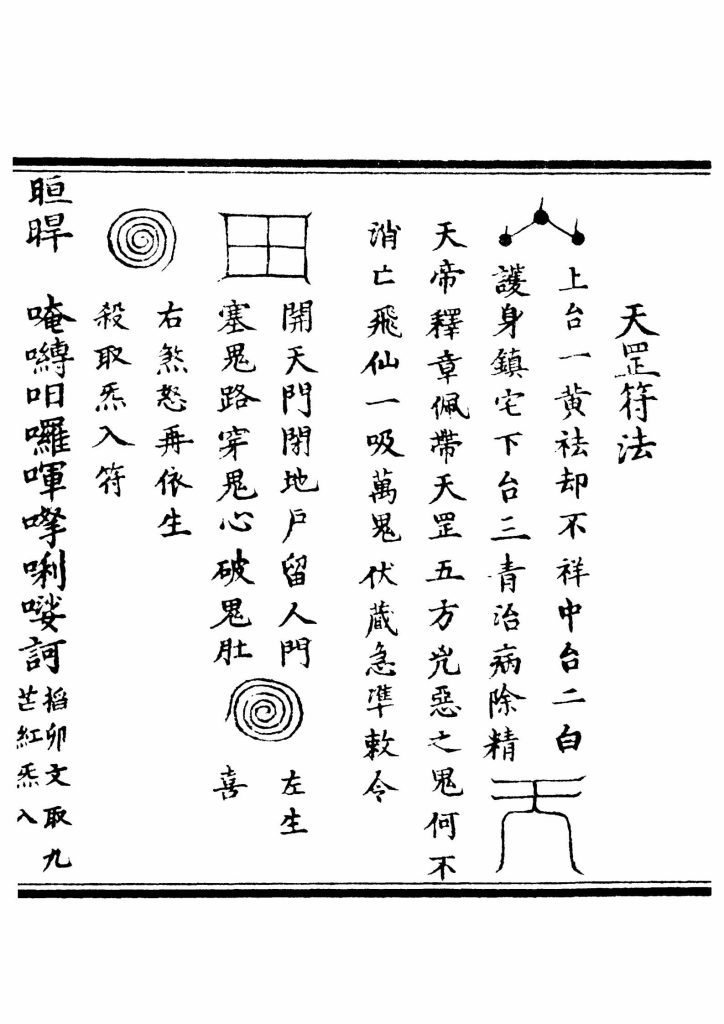 天罡符法
上台一黄祛却不祥中台二白
護身鎮宅下台三青治病除精
天帝釋章佩帶天罡五方兇惡之鬼何不
消亡飛仙一吸萬鬼伏藏急準敕令
開天門閉地戶留人門
塞鬼路穿鬼心破鬼肚
左生
喜
右煞怒再依生
殺取炁入符
晅晘
唵嚩呬囉㖕㗚唎㘂訶
搯卯文取九
芒紅炁入